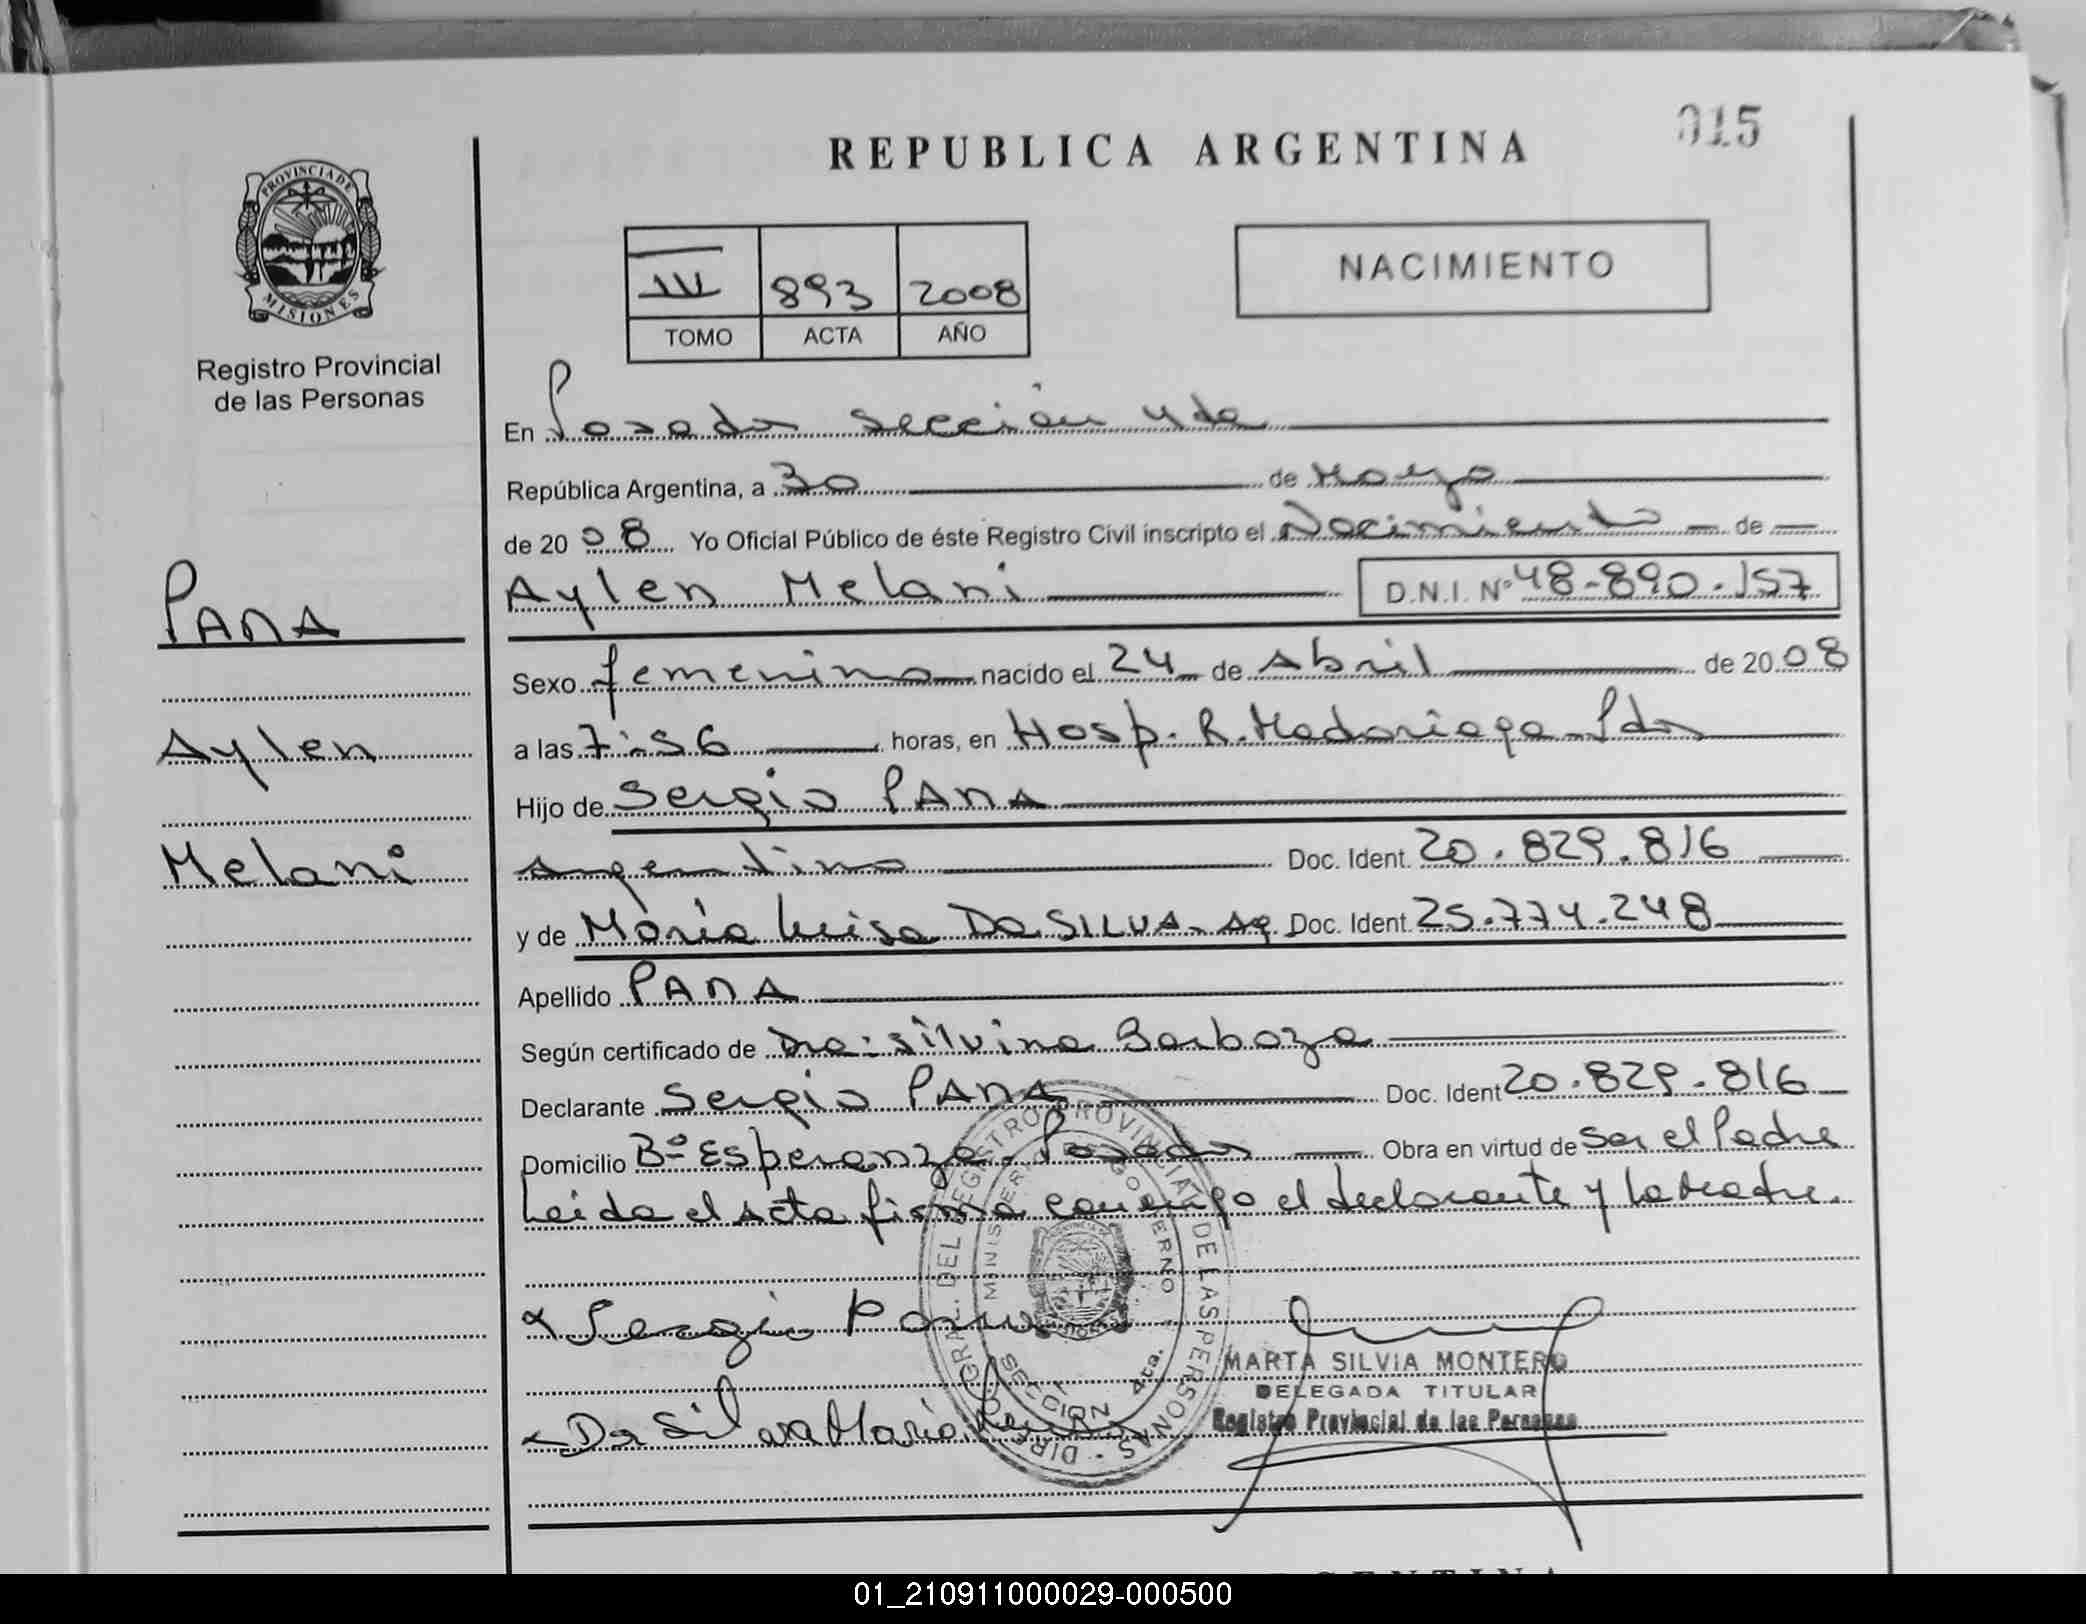 015
REPUBLICA ARGENTINA
PROVINCIA DE MISIONES
Registro Provincial
de las Personas
III 893 2008
TOMO ACTA AÑO
NACIMIENTO
En Posadas sección 4ta
República Argentina, a 30 de Mayo
de 2008 Yo Oficial Público de éste Registro Civil inscripto el Nacimiento de
Aylen Melani D.N.I. Nº 48-890.157
PANA
Sexo femenino nacido el 24 de Abril de 2008
Aylen
a las 7:56 horas, en Hosp. R. Madariaga Pdas
Hijo de Sergio PANA
Melani
Argentino Doc. Ident. 20.829.816
y de María Luisa Da SILVA - Ag. Doc. Ident. 25.774.248
Apellido PANA
Según certificado de Dra: Silvina Barboza
Declarante Sergio PANA Doc. Ident 20.829.816
Domicilio Bº Esperanza - Posadas Obra en virtud de ser el Padre
Leida el Acta firma conmigo el declarante y la madre.
DIREC. GRAL. DEL REGISTRO PROVINCIAL DE LAS PERSONAS
MINISTERIO GOBIERNO
SECCION 4ta.
Sergio
Da Silva Maria Luisa
MARTA SILVIA MONTERO
DELEGADA TITULAR
Registro Provincial de las Personas
01_210911000029-000500